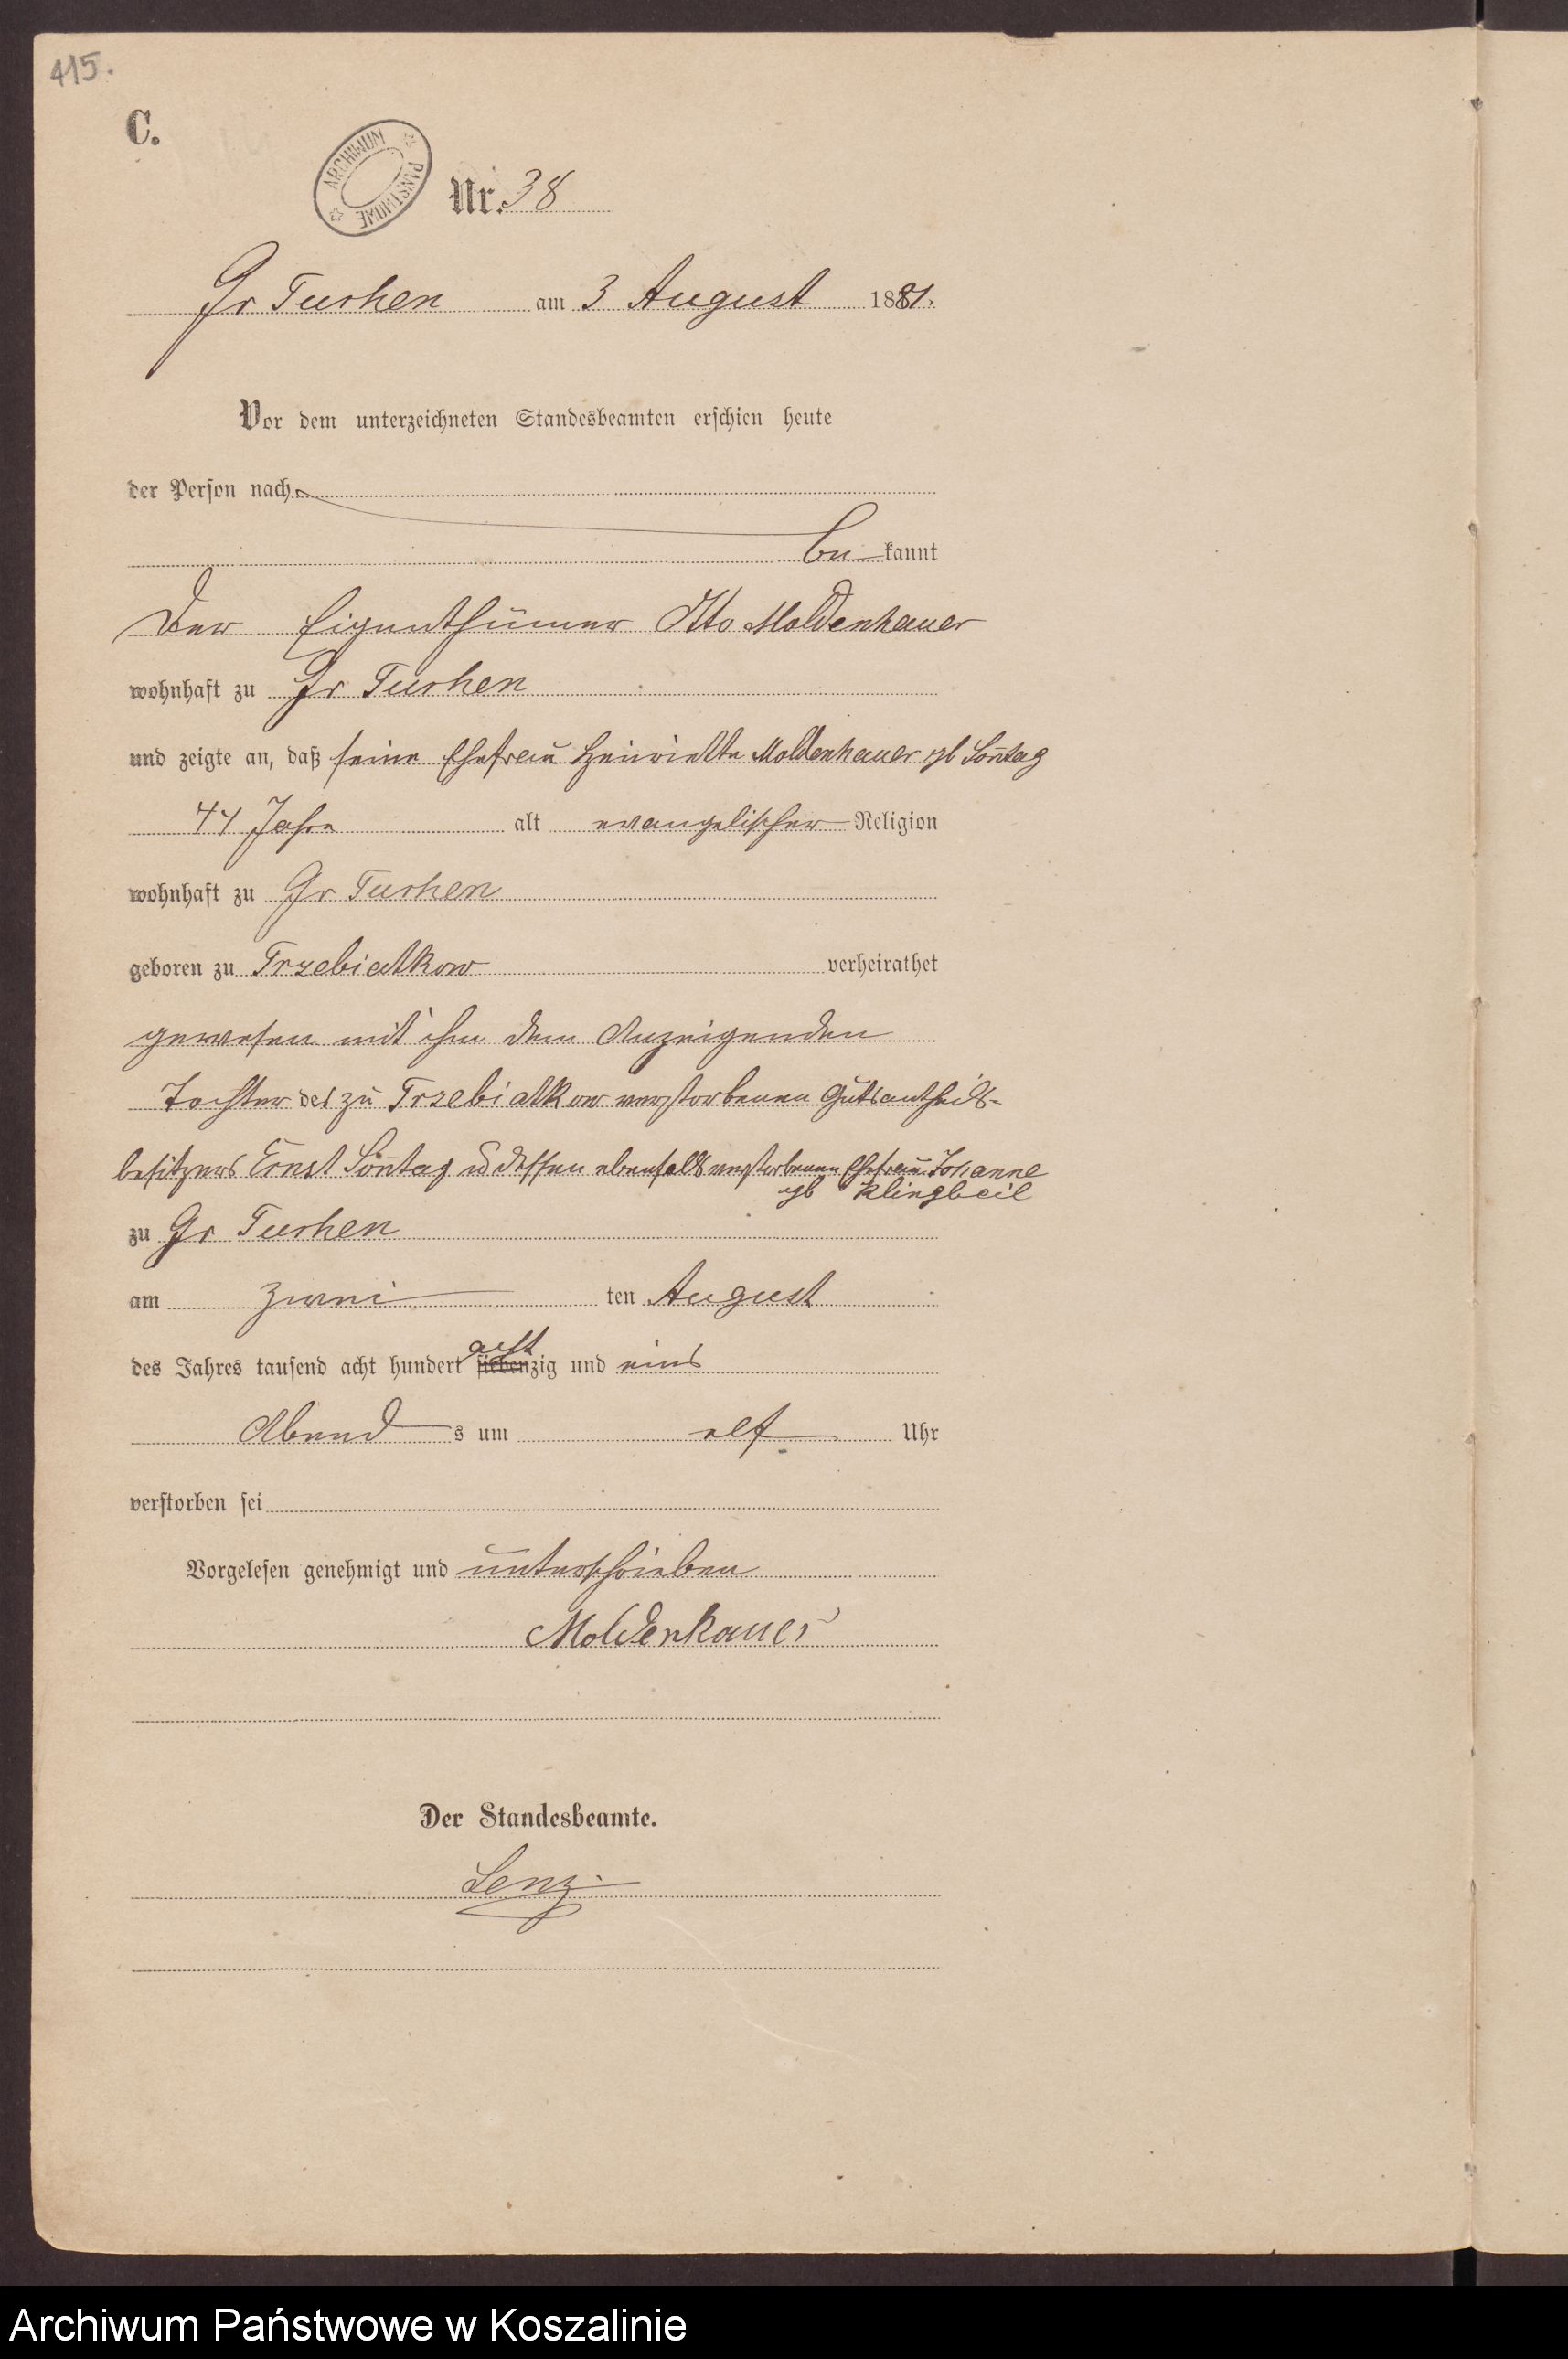 415.
C.
ARCHIWUM PAŃSTWOWE
Nr. 38
Gr Tuchen am 3 August 1881.
Vor dem unterzeichneten Standesbeamten erschien heute
der Person nach
be kannt
Der Eigenthümer Otto Moldenhauer
wohnhaft zu Gr Tuchen
und zeigte an, daß seine Ehefrau Henriette Moldenhauer gb Son̄tag
44 Jahre alt evangelischer Religion
wohnhaft zu Gr Tuchen
geboren zu Trzebiatkow verheirathet
gewesen mit ihm dem Anzeigenden
Tochter des zu Trzebiatkow verstorbenen Gutsantheils-
besitzers Ernst Son̄tag u dessen ebenfalls verstorbenen Ehefrau
gb Klingbeil
zu Gr Tuchen
am zwei ten August
acht
des Jahres tausend acht hundert siebenzig und eins
Abend s um elf Uhr
verstorben sei
Vorgelesen genehmigt und unterschrieben
Moldenhauer
Der Standesbeamte.
Lenz
Archiwum Państwowe w Koszalinie